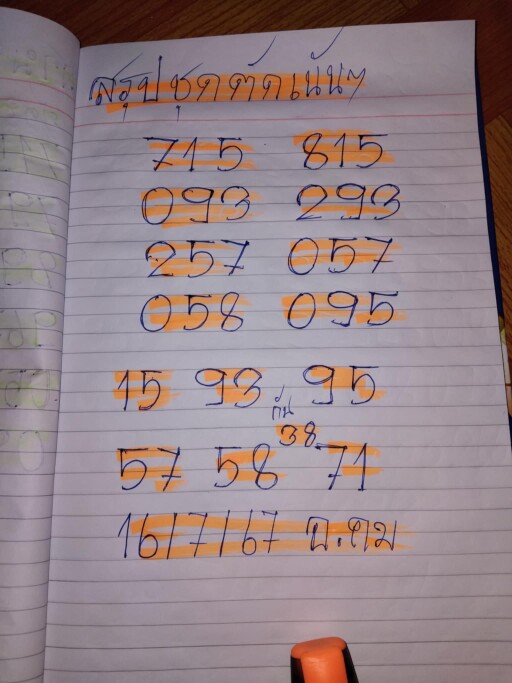 สรุปชุดตัดเน้นๆ
715 815
093 293
257 057
058 095
15 93 95
กัน
38
57 58 71
16/7/67 อ.คม